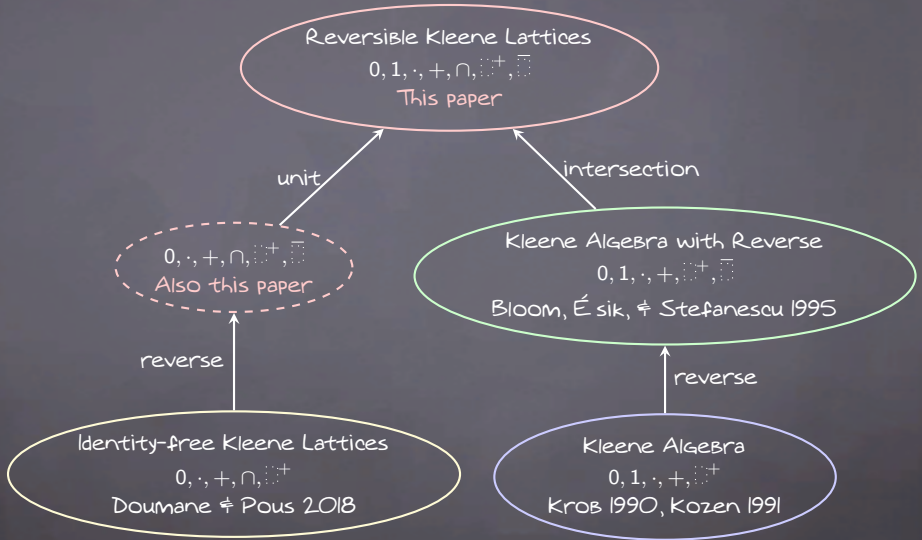 Reversible Kleene Lattices
0, 1, ·, +, ∩, ⬚⁺, ⬚̅
This paper
unit
intersection
0, ·, +, ∩, ⬚⁺, ⬚̅
Also this paper
Kleene Algebra with Reverse
0, 1, ·, +, ⬚⁺, ⬚̅
Bloom, Ésik, & Stefanescu 1995
reverse
reverse
Identity-free Kleene Lattices
0, ·, +, ∩, ⬚⁺
Doumane & Pous 2018
Kleene Algebra
0, 1, ·, +, ⬚⁺
Krob 1990, Kozen 1991